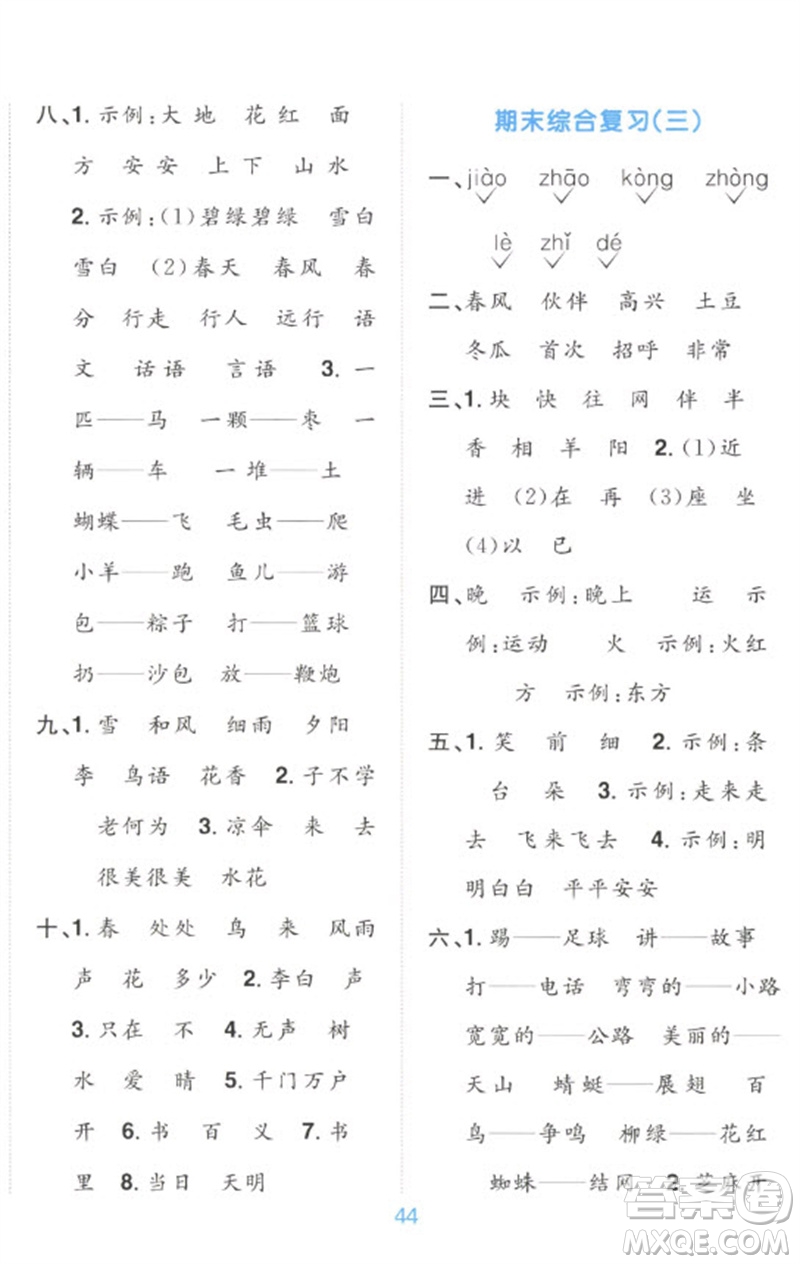 八、1. 示例:大地 花红 面
方 安安 上下 山水
2. 示例:(1)碧绿碧绿 雪白
雪白 (2)春天 春风 春
分 行走 行人 远行 语
文 话语 言语 3. 一
匹——马 一颗——枣 一
辆——车 一堆——土
蝴蝶——飞 毛虫——爬
小羊——跑 鱼儿——游
包——粽子 打——篮球
扔——沙包 放——鞭炮
九、1. 雪 和风 细雨 夕阳
李 鸟语 花香 2. 子不学
老何为 3. 凉伞 来 去
很美很美 水花
十、1. 春 处处 鸟 来 风雨
声 花 多少 2. 李白 声
3. 只在 不 4. 无声 树
水 爱 晴 5. 千门万户
开 6. 书 百 义 7. 书
里 8. 当日 天明
期末综合复习(三)
一、jiào zhāo kòng zhòng
lè zhǐ dé
二、春风 伙伴 高兴 土豆
冬瓜 首次 招呼 非常
三、1. 块 快 往 网 伴 半
香 相 羊 阳 2. (1)近
进 (2)在 再 (3)座 坐
(4)以 已
四、晚 示例:晚上 运 示
例:运动 火 示例:火红
方 示例:东方
五、1. 笑 前 细 2. 示例:条
台 朵 3. 示例:走来走
去 飞来飞去 4. 示例:明
明白白 平平安安
六、1. 踢——足球 讲——故事
打——电话 弯弯的——小路
宽宽的——公路 美丽的——
天山 蜻蜓——展翅 百
鸟——争鸣 柳绿——花红
蜘蛛——结网 2. 芝麻开
44
答案圈
MXQE.COM